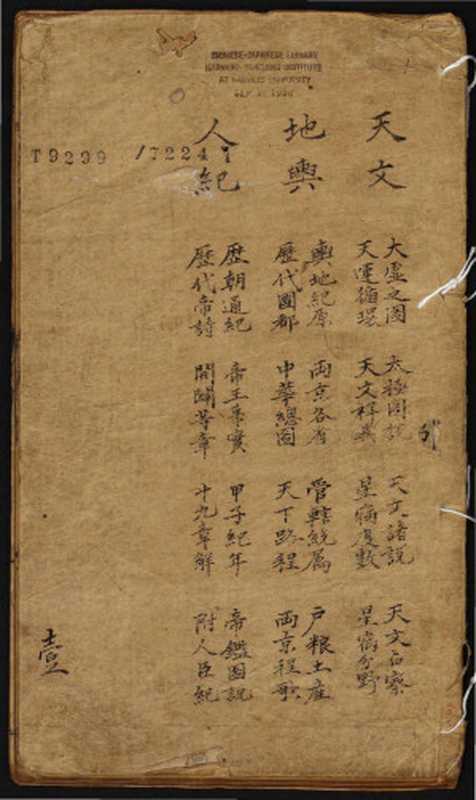 CHINESE-JAPANESE LIBRARY
HARVARD-YENCHING INSTITUTE
AT HARVARD UNIVERSITY
T9299 /7224
天文
大虛之圖 太極圖說 天文諸說 天文
天運循環 天文釋義 星宿度數 星宿分野
地輿
輿地紀原 両京各省 管轄統屬 户粮土産
歷代國都 中華總圖 天下路程 両京程歌
人紀
歷朝通紀 帝王事實 甲子紀年 帝鑑圖說
歷代帝 開闢等章 十九章解 附人臣紀
壹